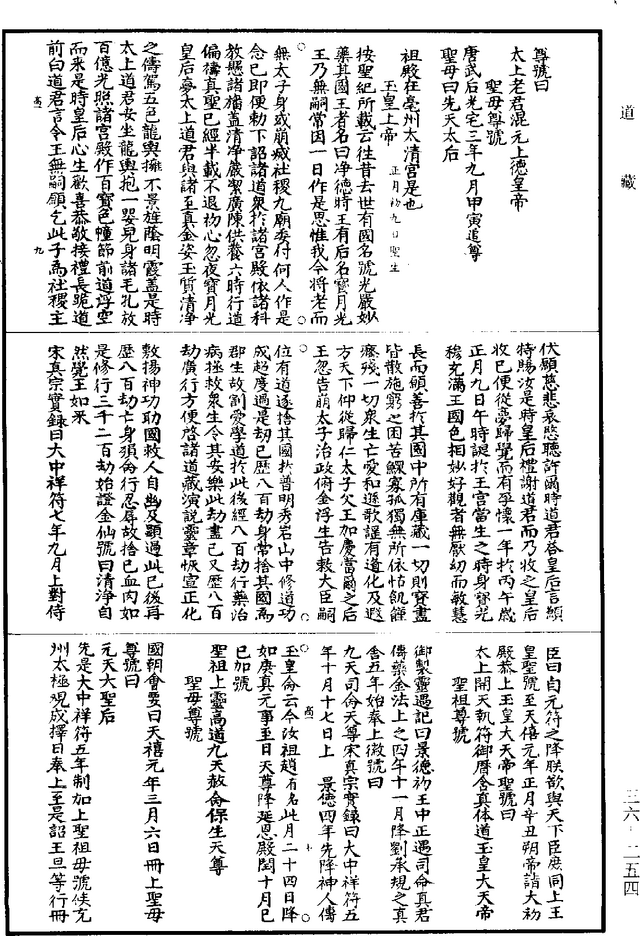 道藏
尊號曰
太上老君混元上德皇帝
聖母尊號
唐武后光宅三年九月甲寅追尊
聖母曰先天太后
祖殿在亳州太清宮是也
玉皇上帝 正月初九日聖生
按聖紀所載云往昔去世有國名號光嚴妙
藥其國王者名曰淨德時王有后名寶月光
王乃無嗣常因一日作是思惟我今將老而
無太子身或崩歲社稷九廟委付何人作是
念已即便勅下詔諸道眾於諸宮殿依諸科
教懸諸旛蓋清淨嚴潔廣陳供養六時行道
徧禱真聖已經半載不退初心忽夜寶月光
皇后夢太上道君與諸至真金姿玉質清淨
之儔駕五色龍輿擁不景旌蔭明霞蓋是時
太上道君安坐龍輿抱一嬰兒身諸毛孔放
百億光照諸宮殿作百寶色幢節前道浮空
而來是時皇后心生歡喜恭敬接禮長跪道
前白道君言今王無嗣願乞此子為社稷主
九
伏願慈悲哀愍聽許爾時道君荅皇后言願
特賜汝是時皇后禮謝道君而乃收之皇后
收已便從夢歸覺而有孕懷一年於丙午歲
正月九日午時誕於王宮當生之時身寶光
穆充滿王國色相妙好觀者無厭幼而敏慧
長而願善於其國中所有庫藏一切財寶盡
皆散施窮乏困苦鰥寡孤獨無所依怙飢饉
癃殘一切眾生亡愛和遜歌謠有道化及遐
方天下仰從歸仁太子父王加慶當爾之後
王忽告崩太子治政俯念浮生告敕大臣嗣
位有道遂捨其國於普明秀岩山中修道功
成超度過是劫已歷八百劫身常捨其國為
群生故割愛學道於此後經八百劫行藥治
病拯救眾生令其安樂此劫盡已又歷八百
劫廣行方便啓諸道藏演說靈章恢宣正化
敷揚神功助國救人自幽及顯過此已後再
歷八百劫亡身殞命行忍辱故捨已血肉如
是修行三千二百劫始證金仙號曰清淨自
然覺王如來
宋真宗實錄曰大中祥符七年九月上對侍
臣曰自元符之降朕欲與天下臣庶同上玉
皇聖號至天禧元年正月辛丑朔帝詣大初
殿恭上玉皇大天帝聖號曰
太上開天執符御曆含真体道玉皇大天帝
聖祖尊號
御製靈遇記曰景德初王中正遇司命真君
傳藥金法上之四年十一月降劉承規之真
舍五年始奉上徽號曰
九天司命天尊宋真宗實錄曰大中祥符五
年十月十七日上 景德四年先降神人傳
玉皇命云今汝祖趙有名此月二十四日降
如唐真元事至日天尊降延恩殿閏十月已
已加號
聖祖上靈高道九天救命保生天尊
聖母尊號
國朝會要曰天禧元年三月六日冊上聖母
尊號曰
元天大聖后
先是大中祥符五年制加上聖祖母號俟兗
州太極觀成擇日奉上至是詔王旦等行冊
十
三六·二五四